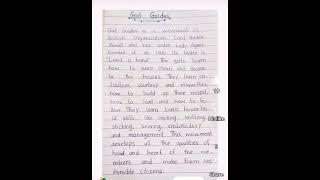 Girl Guides
Girl Guides is a movement of
British Organisation. Lord Baden
Powell and his sister Lady Agnes
founded it in 1910. Its motto is
"Lend a hand". The girls learn
how to keep clean and
in the houses. They learn
courtesy and
how to build up their moral,
how to lead and how to
. They learn basic house ho
ld skills like cooking, knitting,
stiching, serving, embroidery
and management. This movement
develops all the qualities of
hand and heart of the me
mbers and make them res
ponsible citizens.
Dislike
Share